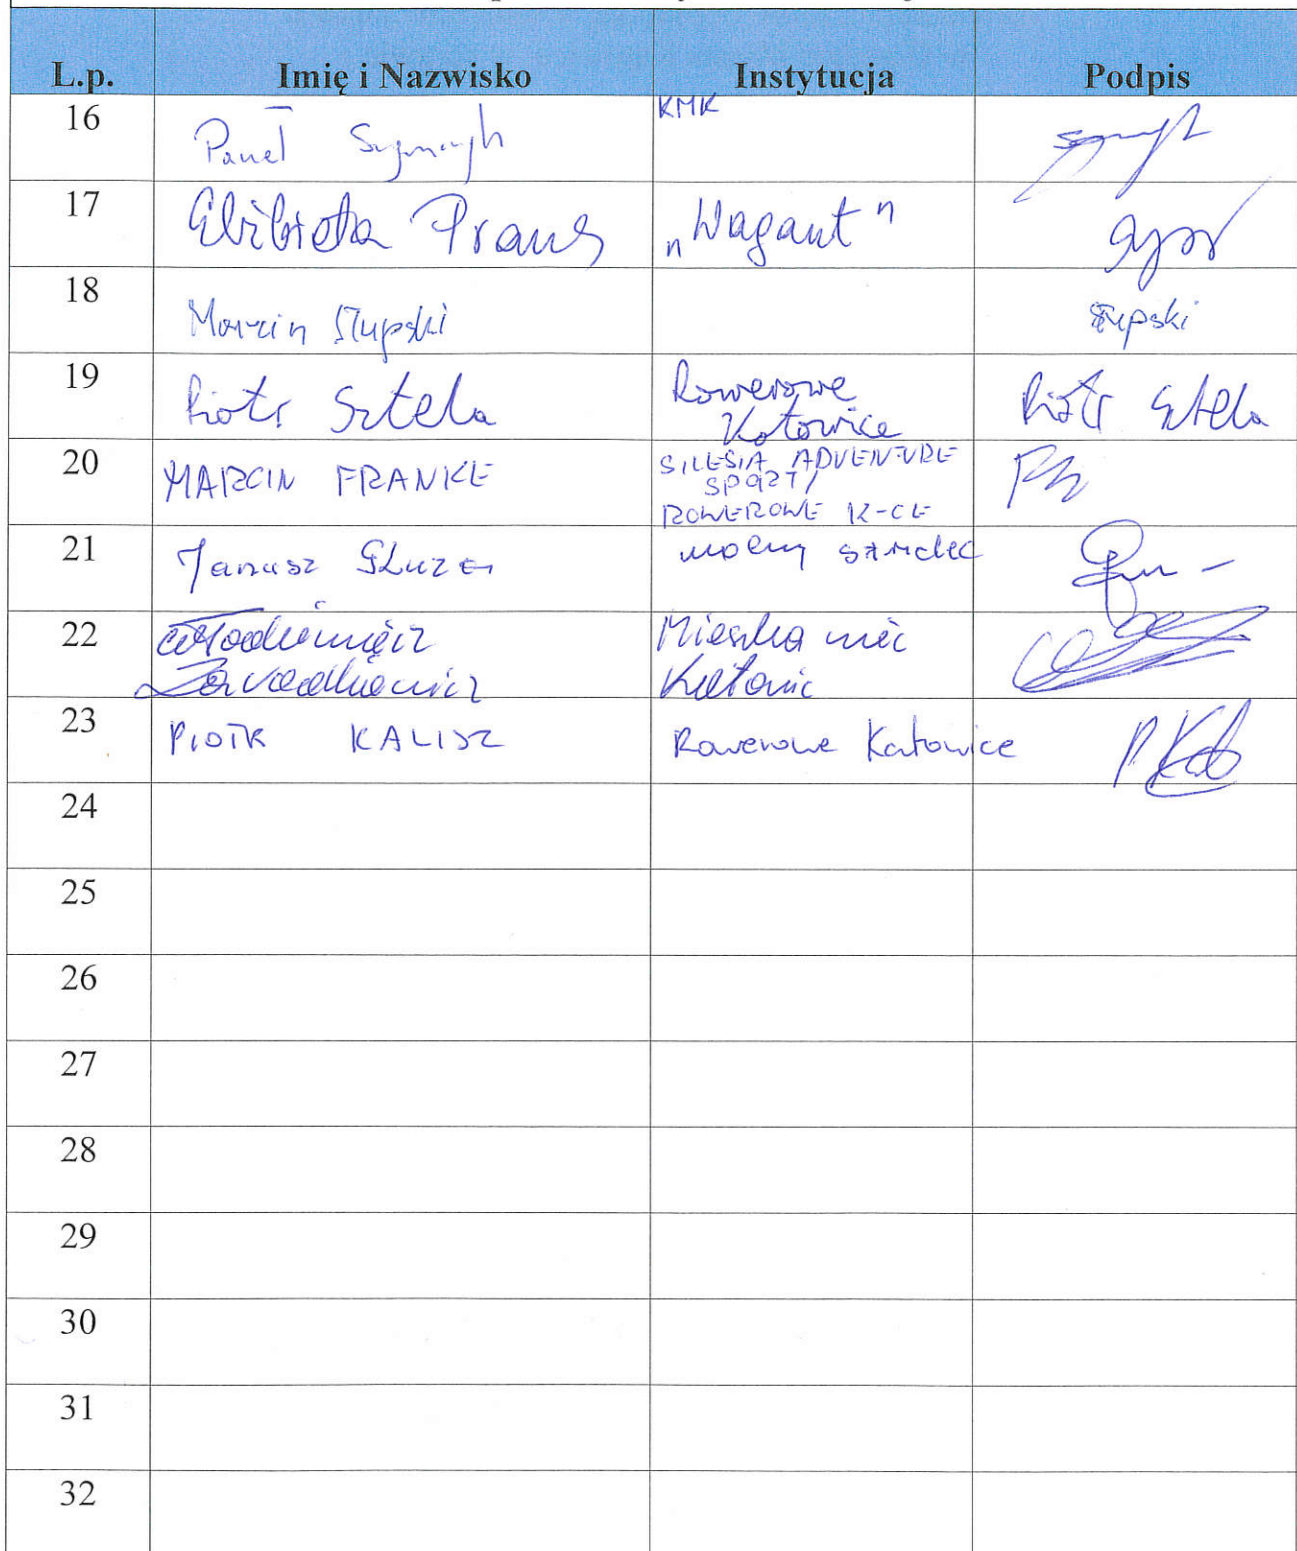 L.p. Imię i Nazwisko Instytucja Podpis
16 Paweł KMK
17 Elżbieta „Wagant"
18 Marcin Słupski Słupski
19 Piotr Sztela Rowerowe Katowice Piotr Sztela
20 MARCIN FRANKE SILESIA ADVENTURE
SPORT/
ROWEROWE K-CE
21 Janusz
22 Włodzimierz Mieszkaniec
Katowic
23 PIOTR KALISZ Rowerowe Katowice
24
25
26
27
28
29
30
31
32